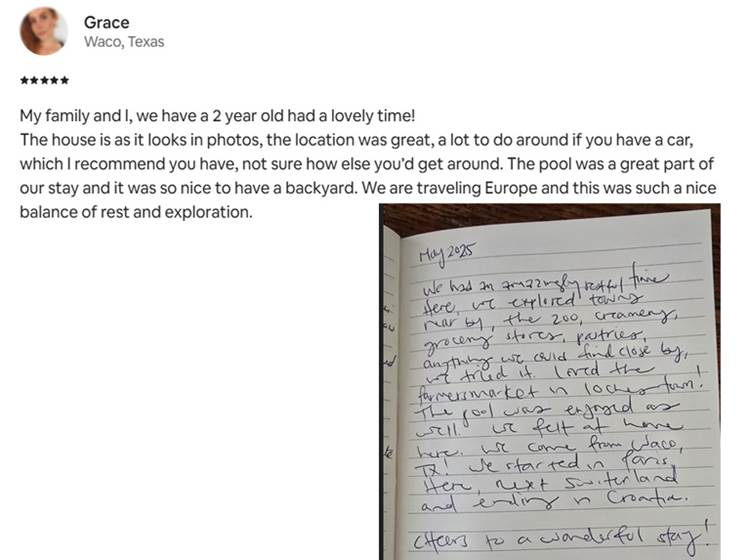 Grace
Waco, Texas
★★★★★
My family and I, we have a 2 year old had a lovely time!
The house is as it looks in photos, the location was great, a lot to do around if you have a car,
which I recommend you have, not sure how else you'd get around. The pool was a great part of
our stay and it was so nice to have a backyard. We are traveling Europe and this was such a nice
balance of rest and exploration.
May 2025
We had an amazingly restful time
Here, we explored towns
near by, the zoo, creamery,
grocery stores, pastries,
anything we could find close by,
we tried it. Loved the
farmersmarket in loches town!
The pool was enjoyed as
well. We felt at home
here. We come from Waco,
TX! We started in Paris,
Here, next Switerland
and ending in Croatia.
Cheers to a wonderful stay!